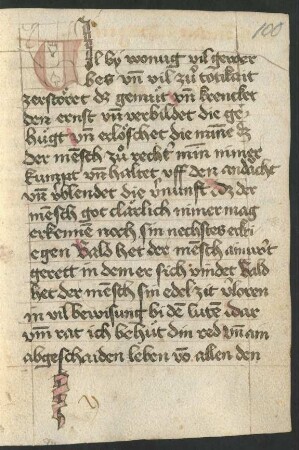 100
Vil by wonug vil gewer
bes vn̄ vil zů
zerstöret dz gemüt vn̄ krencket
den ernst vn̄ verbildet die ge
hügt vn̄ erlöschet die mine dz
der mensch zů rechter minn nimer
kumpt vn̄ haltet vff den andacht
vn̄ vblendet die vnunft dz der
mensch got clärlich nimer mag
erkenne noch sin nechstes
egen Bald het der mensch antwürt
gerett in dem er sich vindet Bald
het der mensch sin edel zit vloren
in vil bewisung bi dē lutē Dar
vm̄ rat ich behüt din red vn̄ am
abgeschaiden leben vō allen den